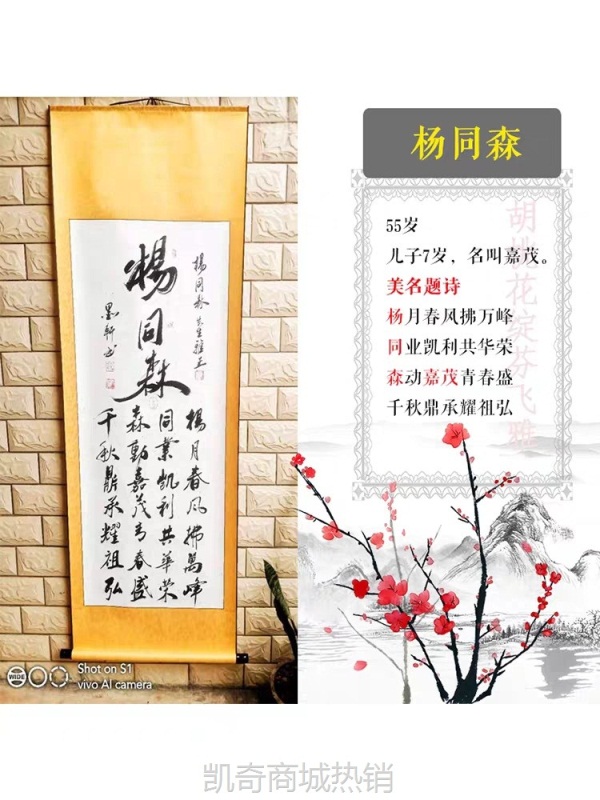 楊同森先生雅正
楊同森
墨軒书
楊月春风拂萬峰
同業凱利共華榮
森動嘉茂青春盛
千秋鼎承耀祖弘
WIDE
Shot on S1
vivo AI camera
杨同森
55岁
儿子7岁，名叫嘉茂。
美名题诗
杨月春风拂万峰
同业凯利共华荣
森动嘉茂青春盛
千秋鼎承耀祖弘
凯奇商城热销